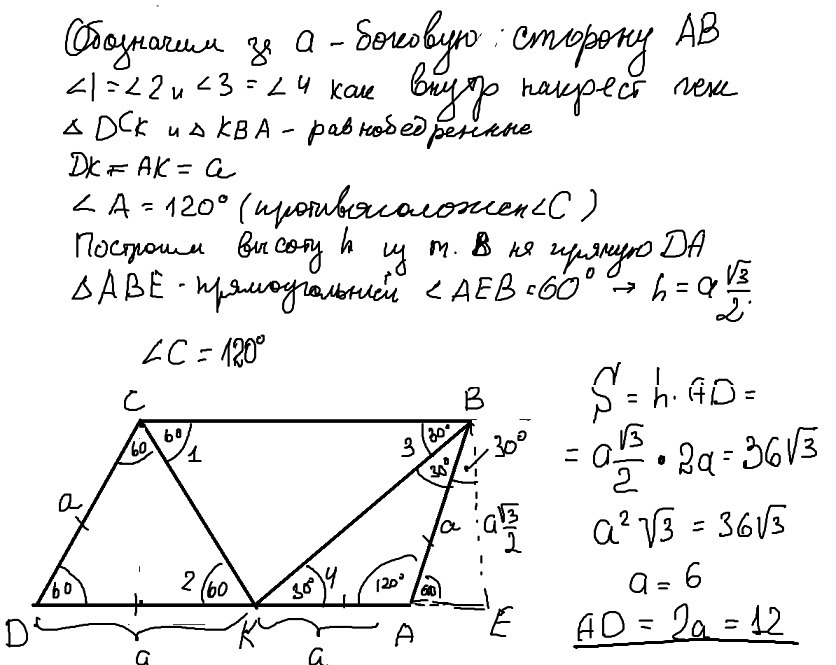 Обозначим за a - боковую сторону AB
∠1 = ∠2 и ∠3 = ∠4 как внутр накрест леж
△ DCK и △ KBA - равнобедренные
DK = AK = a
∠ A = 120° (противоположен ∠C)
Построим высоту h из т. B на прямую DA
△ABE - прямоугольный ∠AEB = 60° → h = a √3/2
∠C = 120°
C
B
60
60
1
3
30°
30°
30°
a
a
a √3/2
60
2
60
30°
4
120°
60
D
K
A
E
a
a
S = h · AD =
= a √3/2 · 2a = 36√3
a² √3 = 36√3
a = 6
AD = 2a = 12